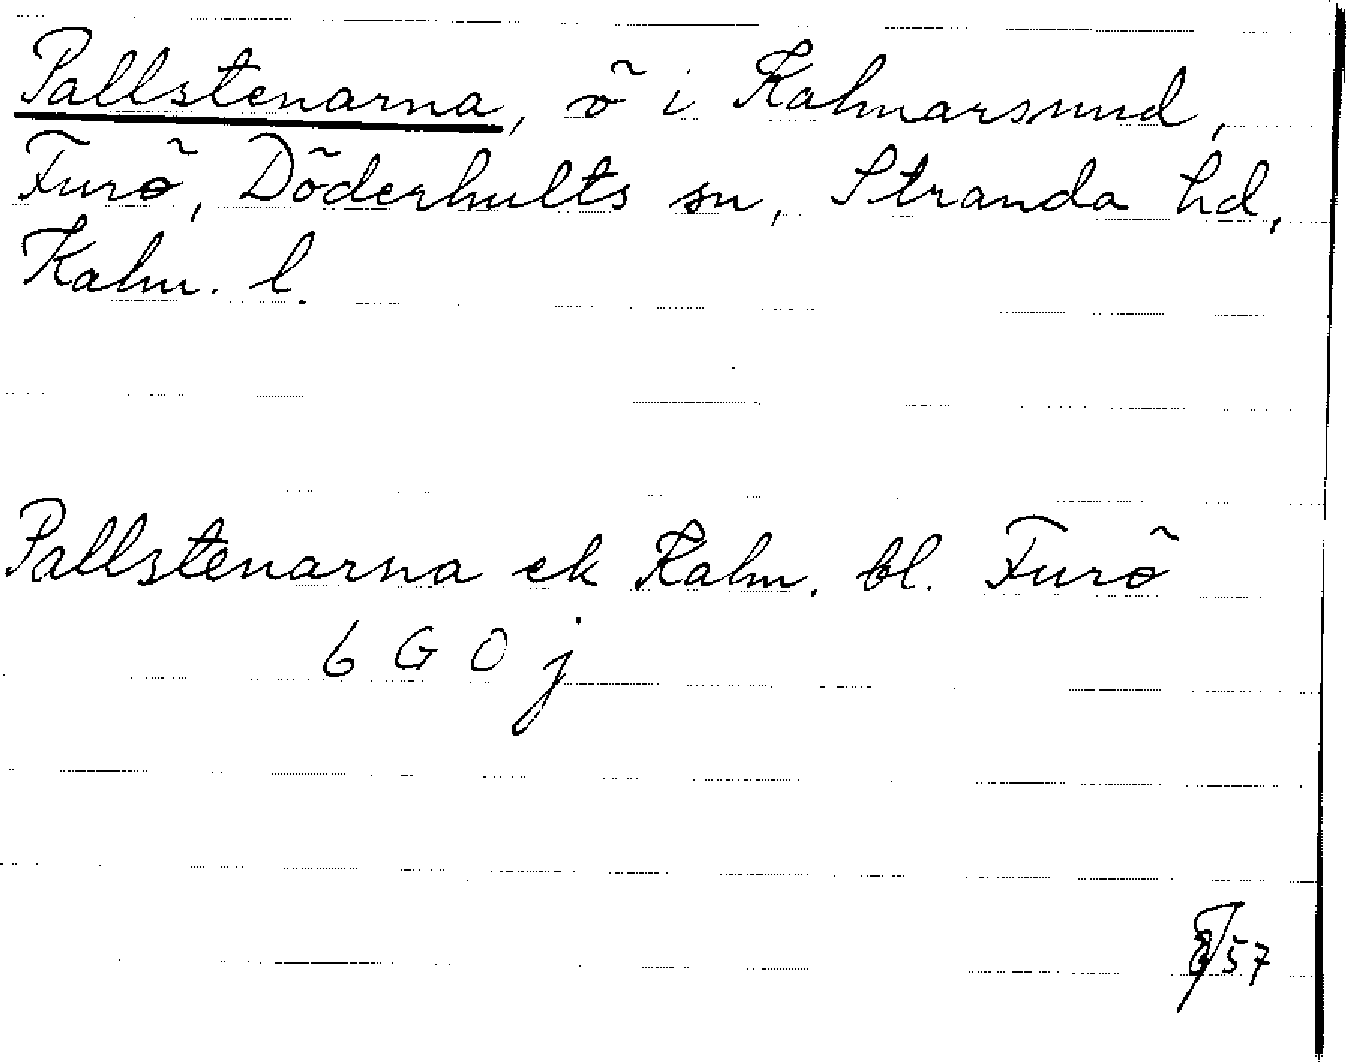 Pallstenarna, ö i Kalmarsund,
Furö, Döderhults sn, Stranda hd,
Kalm. l.
Pallstenarna ek Kalm. bl. Furö
6 G 0 j
57